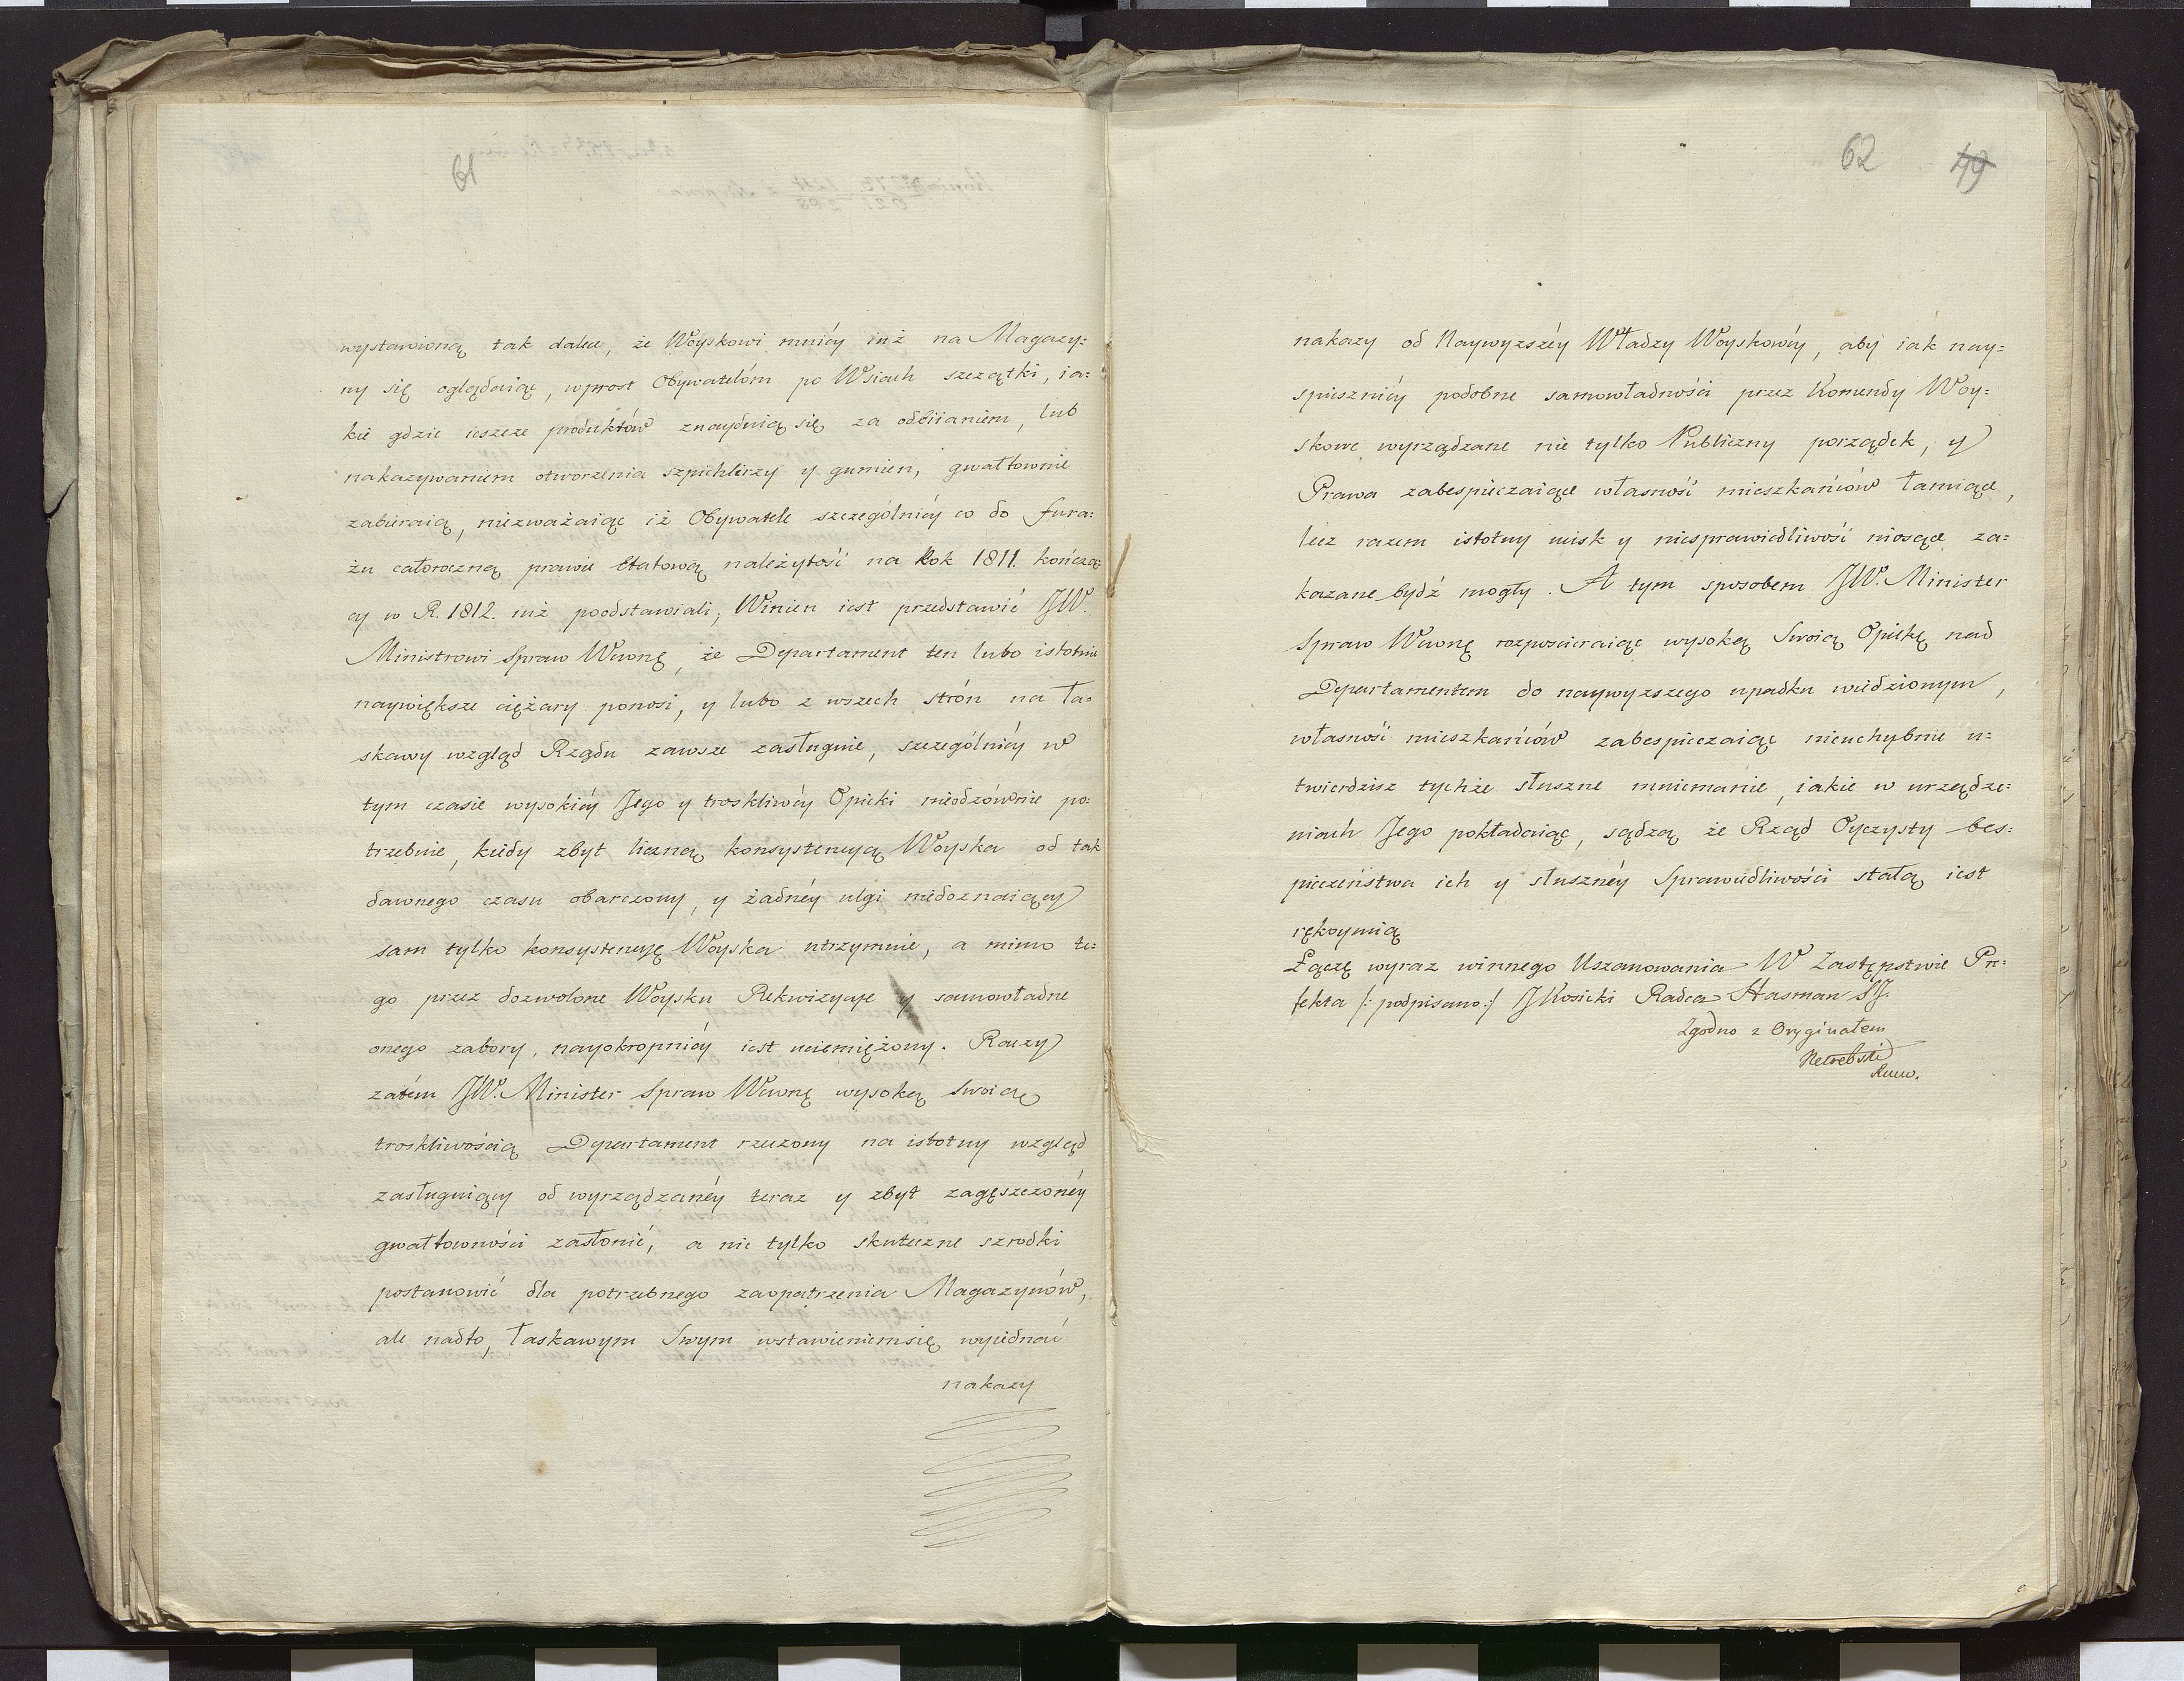 61
wystawioną tak dalece, że Woyskowi mniéy iuż na Magazy:
ny się oglądaiąc, wprost Obywatelóm po Wsiach szczątki, ia:
kie gdzie ieszcze produktów znayduią się za odbiianiem, lub
nakazywaniem otworzenia szpichlerzy y gumien, gwałtownie
zabieraią, niezważaiąc iż Obywatele szczególniéy co do fura:
żu całoroczną prawie Etatową należytość na Rok 1811. kończą:
cy w R. 1812. iuż poodstawiali, Winien iest przedstawić JW.
Ministrowi Spraw Wewnę, że Departament ten lubo istotnie
naywiększe ciężary ponosi, y lubo z wszech strón na ła:
skawy wzgląd Rządu zawsze zasługuie, szczególniéy w
tym czasie wysokiéy Jego y troskliwéy Opieki nieodzównie po:
trzebuie, kiedy zbyt liczną konsystencyą Woyska od tak
dawnego czasu obarczony, y żadnéy ulgi niedoznaiący
sam tylko konsystencyę Woyska utrzymuie, a mimo te:
go przez dozwolone Woysku Rekwizycye y samowładne
onego zabory, nayokropniéy iest uciemiężony. Raczy
zatém JW. Minister Spraw Wewnę wysoką Swoią
troskliwością Departament rzeczony na istotny wzgląd
zasługuiący od wyrządzanéy teraz y zbyt zagęszczonéy
gwałtowności zasłonić, a nie tylko skuteczne szrodki
postanowić dla potrzebnego zaopatrzenia Magazynów,
ale nadto, łaskawym Swym wstawieniemsię wyiednać
nakazy
62 49
nakazy od Naywyższéy Władzy Woyskowéy, aby iák nay:
spieszniéy podobne samowładności przez Komendy Woy:
skowe wyrządzane nie tylko Publiczny porządek, y
Prawa zabespieczaiące własność mieszkańców łamiące,
lecz razem istotny ucisk y niesprawiedliwość niosące za:
kazane bydź mogły. A tym sposobem JW. Minister
Spraw Wewnę rozpościeraiąc wysoką Swoią Opiekę nad
Departamentem do naywyższego upadku wiedzionym,
własność mieszkańców zabespieczaiąc nieuchybnie u:
twierdzisz tychże słuszne mniemanie, iakie w urządze:
niach Jego pokładaiąc, sądzą że Rząd Oyczysty bes:
pieczeństwa ich y słusznéy Sprawiedliwości stałą iest
rękoymią
Łączę wyraz winnego Uszanowania W Zastępstwie Pre:
fekta /: podpisano :/ J Kosicki Radca Hasman SJ.
Zgodno z Oryginałem